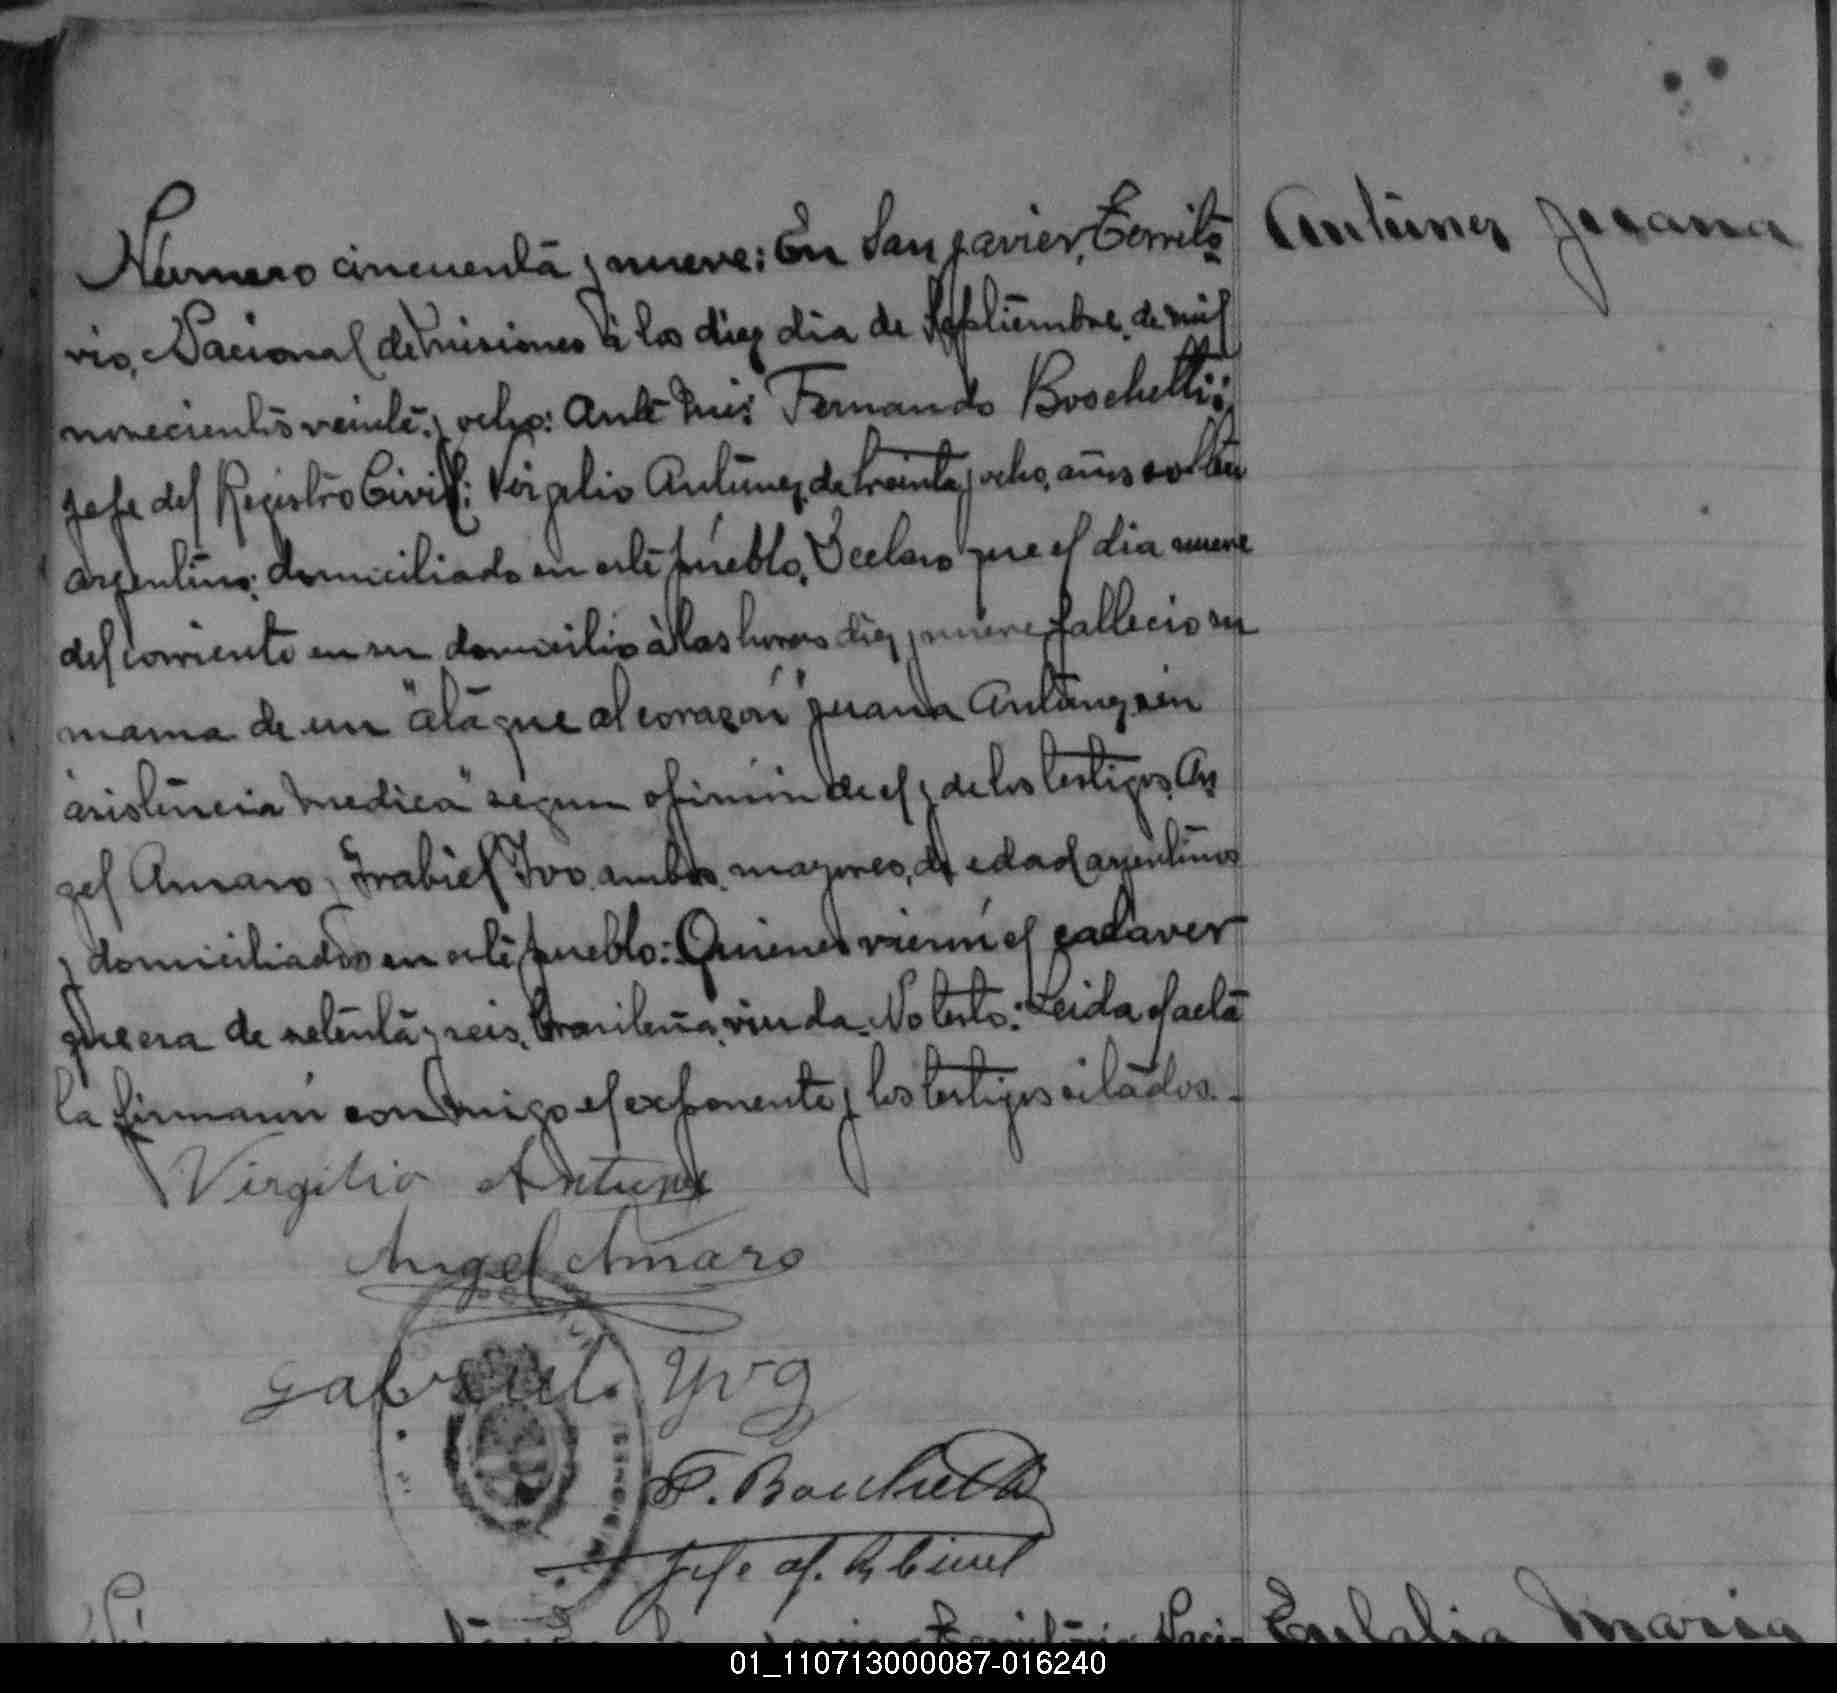 Antúnez Juana
Número cincuenta y nueve: En San Javier, Territo-
rio Nacional de Misiones á los diez dia de Septiembre de mil
novecientos veinte y ocho: Ante Mi: Fernando Boschetti:
Jefe del Registro Civil: Virgilio Antúnez, de treinta y ocho, años
argentino, domiciliado en este pueblo, Declaro que el dia nueve
del corriente en su domicilio à las horas diez y nueve fallecio su
mama de un "atáque al corazón" Juana Antúnez, sin
asistencia medica" segun opinión de el y de los testigos, An
gel Amaro y Grabiel Ivo, ambos, mayores, de edad argentinos
y domiciliados en este pueblo: Quienes vierón el cadaver
que era de setenta y seis, brasileña, viuda. No testo: Leida el acta
la firmarón conmigo el exponente y los testigos citados.-
Virgilio Antunez
Angel Amaro
Gabriel Yvo
F. Boschetti
Jefe of. R. Civil
MISIONES
Eulalia Maria
01_110713000087-016240